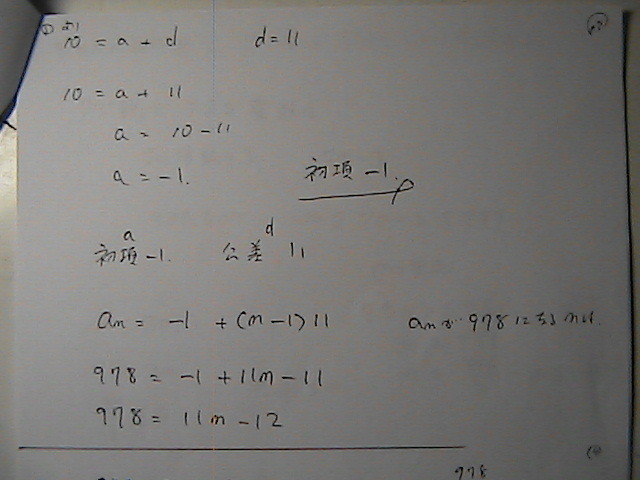 10 = a + d  d = 11
10 = a + 11
a = 10 - 11
a = -1.
初項 -1.
a  d
初項 -1.  公差 11
an = -1 + (n-1) 11  anが 978 になるnは.
978 = -1 + 11n - 11
978 = 11n - 12
978